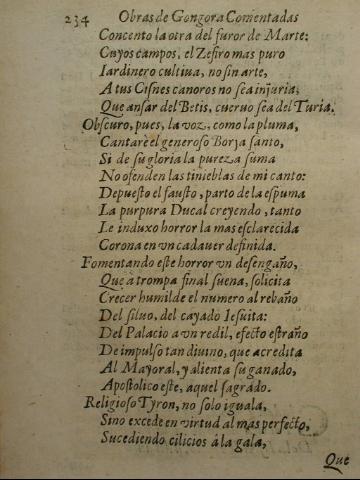 234 Obras de Gongora Comentadas
Concento la otra del furor de Marte:
Cuyos campos, el Zefiro mas puro
Iardinero cultiua, no sin arte,
A tus Cisnes canoros no sea injuria,
Que ansar del Betis, cueruo sea del Turia.
Obscuro, pues, la voz, como la pluma,
Cantarè el generoso Borja santo,
Si de su gloria la pureza suma
No ofenden las tinieblas de mi canto:
Depuesto el fausto, parto de la espuma
La purpura Ducal creyendo, tanto
Le induxo horror la mas esclarecida
Corona en vn cadauer definida.
Fomentando este horror vn desengaño,
Que à trompa final suena, solicita
Crecer humilde el numero al rebaño
Del siluo, del cayado Iesuita:
Del Palacio a vn redil, efecto estraño
De impulso tan diuino, que acredita
Al Mayoral, y alienta su ganado,
Apostolico este, aquel sagrado.
Religioso Tyron, no solo iguala,
Sino excede en virtud al mas perfecto,
Sucediendo cilicios à la gala,
Que